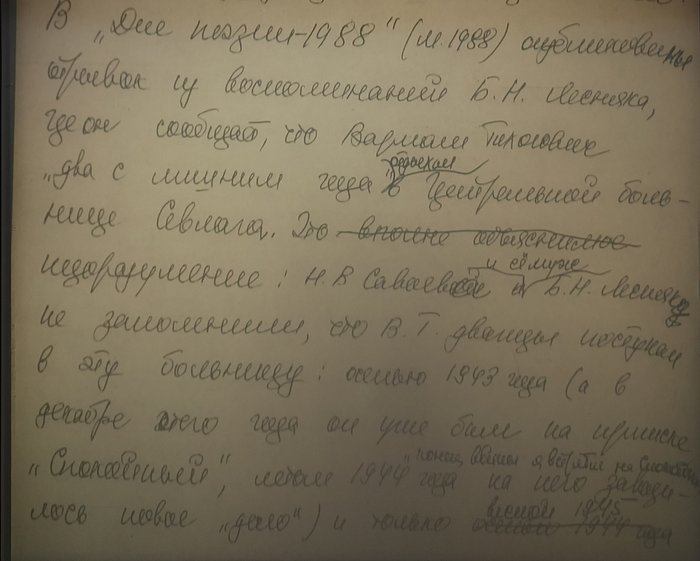 В „Дне поэзии-1988“ (М. 1988) опубликованы
отрывок из воспоминаний Б.Н. Лесняка,
где он сообщает, что Варлам Тихонович
отдыхал
„два с лишним года в Центральной боль-
нице Севлага. Это вполне объяснимое
и с ему же
недоразумение: Н.В Савоевой и Б.Н. Лесняку
не запомнили, что В.Т. дважды поступал
в эту больницу: осенью 1943 года (а в
декабре этого года он уже был на прииске
на Спокойном
„Спокойный“, летом 1944 года на него заводи-
весной 1945
лось новое „дело“) и только осенью 1944 года